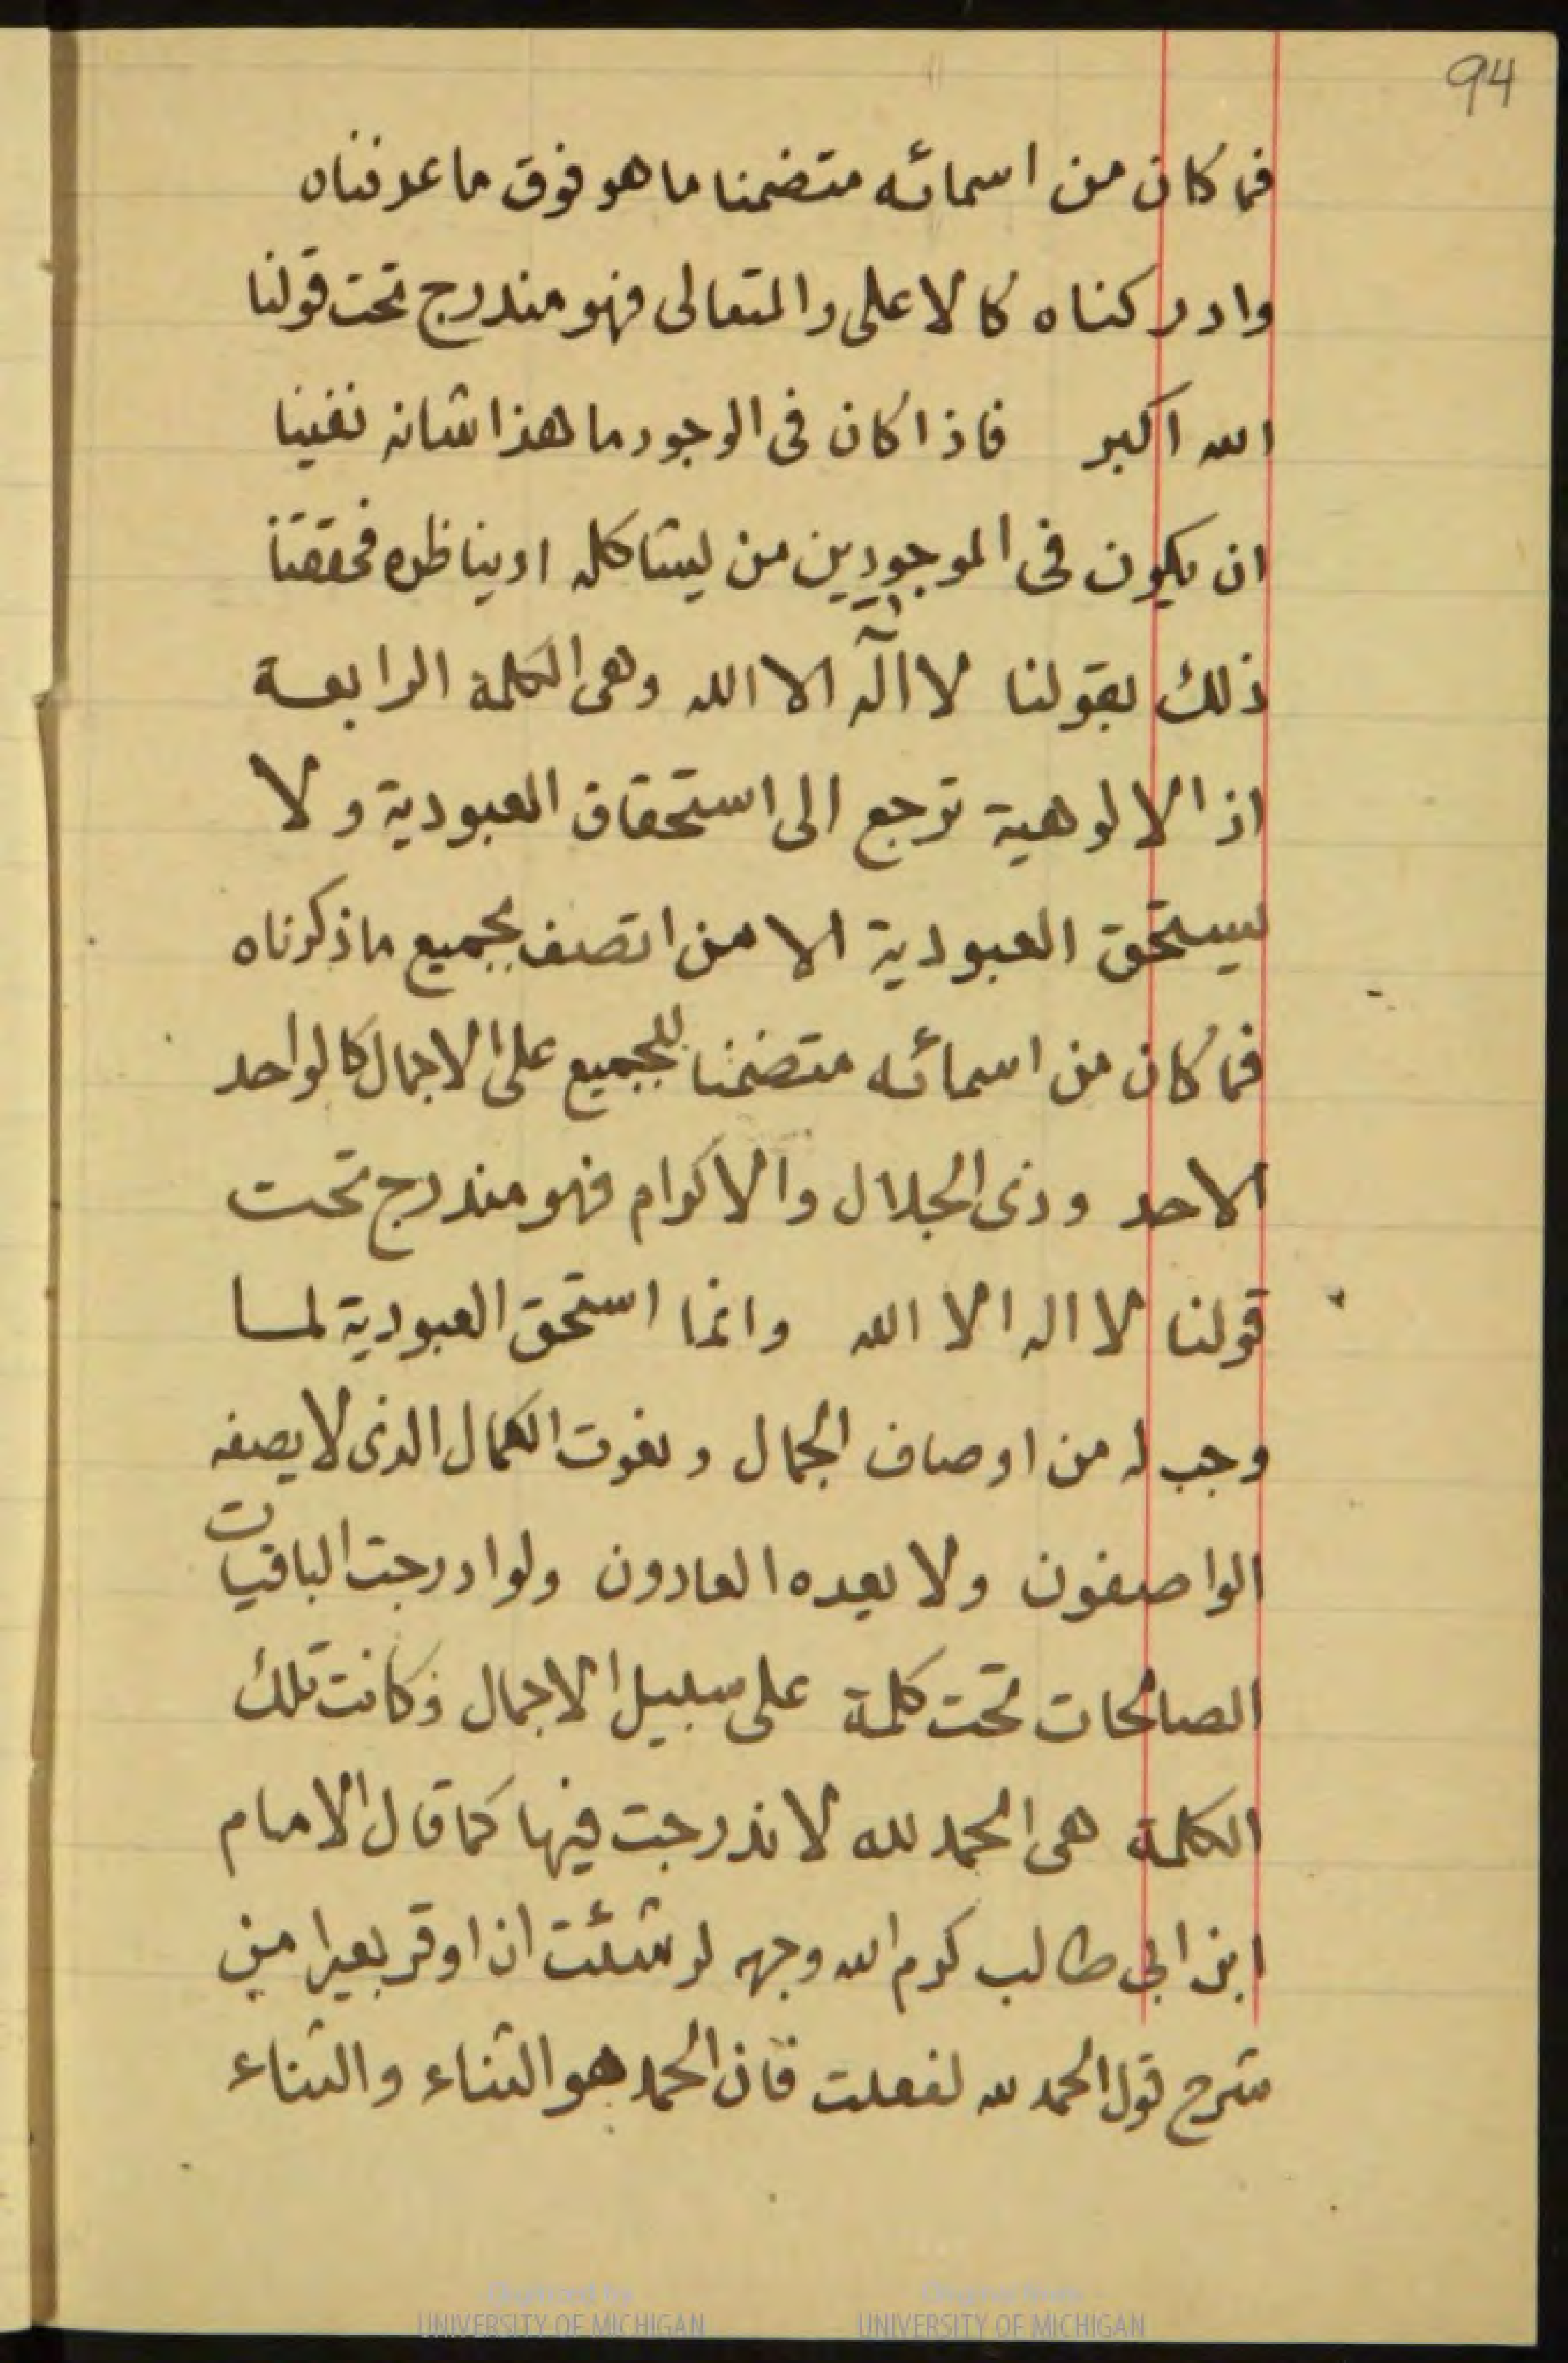 94
فما كان من اسمائه متضمنا ما هو فوق ما عرفناه
وادركناه كالاعلى والمتعالى فهو مندرج تحت قولنا
الله اكبر فاذا كان فى الوجود ما هذا شانه نفينا
ان يكون فى الموجودين من يشاكله او يناظره فحققنا
ذلك بقولنا لا اله الا الله وهى الكلمة الرابعة
اذ الالوهية ترجع الى استحقاق العبودية ولا
يستحق العبودية الا من اتصف بجميع ما ذكرناه
فما كان من اسمائه متضمنا للجميع على الاجمال كالواحد
الاحد وذى الجلال والاكرام فهو مندرج تحت
قولنا لا اله الا الله وانما استحق العبودية لما
وجب له من اوصاف الجمال ونعوت الكمال الذى لا يصفه
الواصفون ولا يعده العادون ولو ادرجت الباقيات
الصالحات تحت كلمة على سبيل الاجمال وكانت تلك
الكلمة هى الحمد لله لاندرجت فيها كما قال الامام
ابن ابى طالب كرم الله وجهه لو شئت ان اوقر بعيرا من
شرح قول الحمد لله لفعلت فان الحمد هو الثناء والثناء
Digitized by
UNIVERSITY OF MICHIGAN
Original from
UNIVERSITY OF MICHIGAN